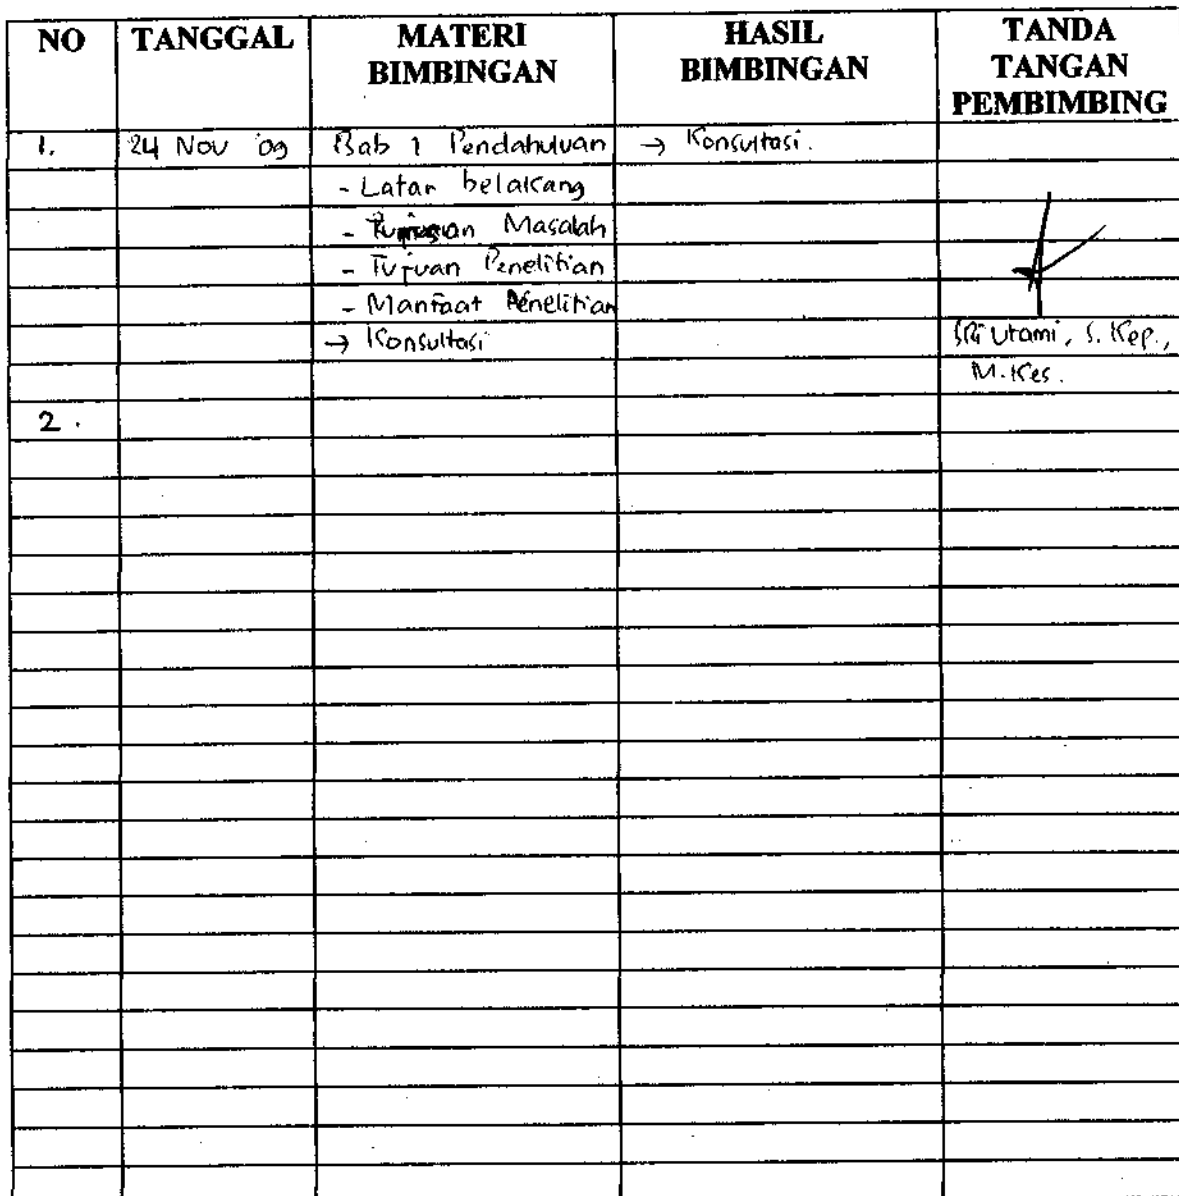 NO TANGGAL MATERI BIMBINGAN HASIL BIMBINGAN TANDA TANGAN PEMBIMBING
1. 24 Nov '09 Bab 1 Pendahuluan → Konsultasi.
- Latar belakang
- Masalah
- Tujuan Penelitian
- Manfaat Penelitian
→ Konsultasi Sri Utami, S. Kep.,
M. Kes.
2.